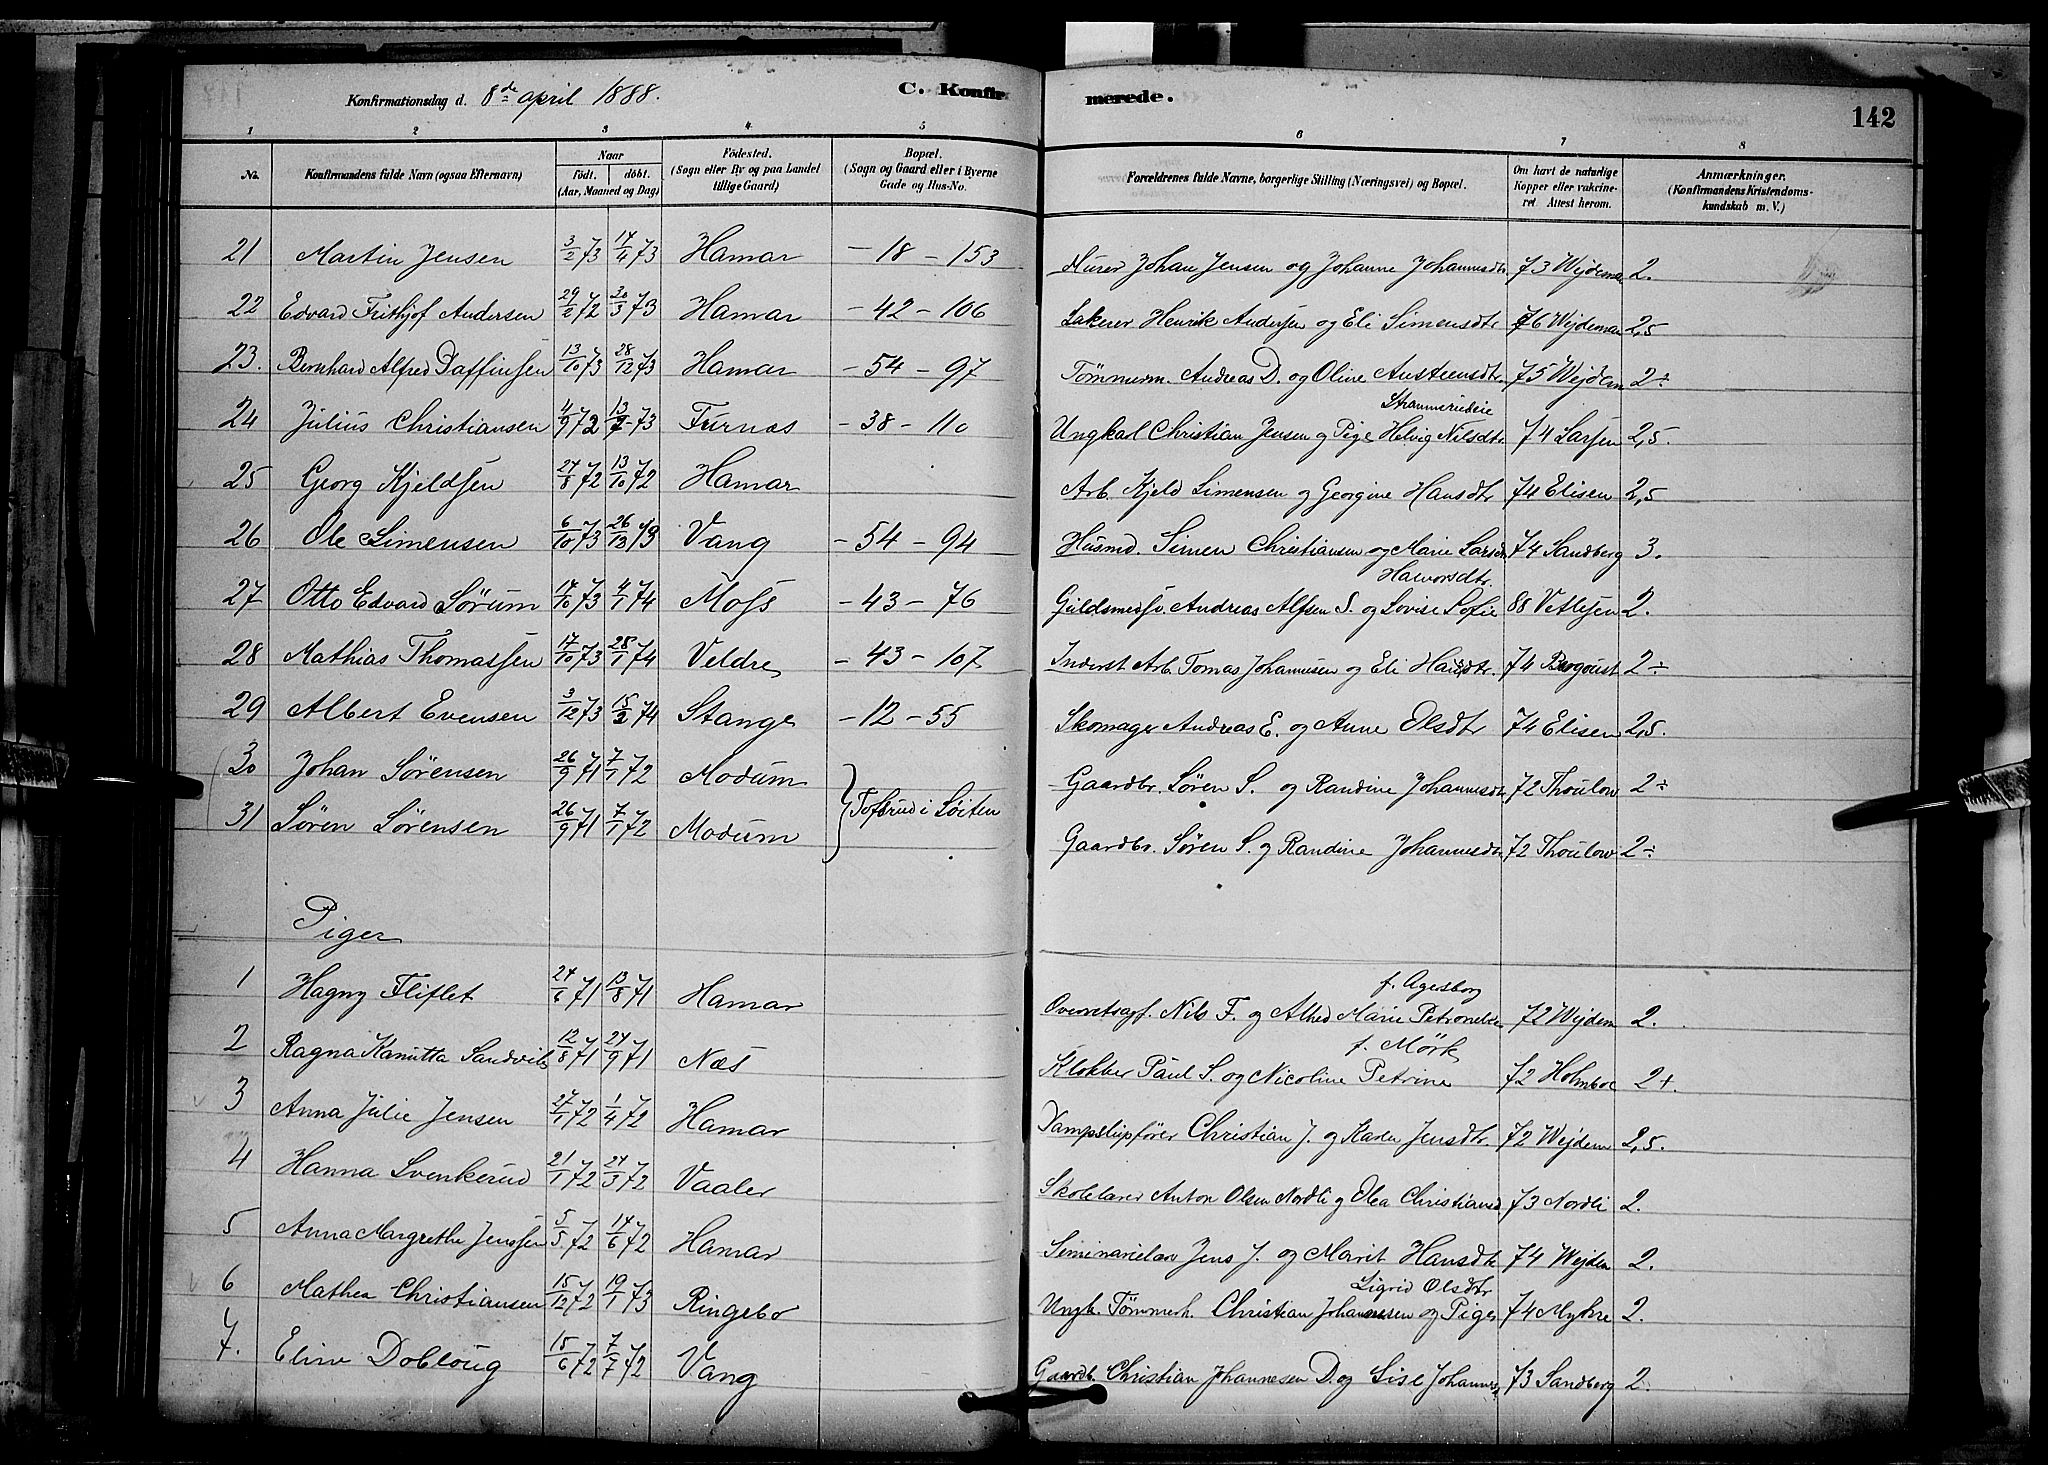 Konfirmationsdag d. 8de april 1888. C. Konfirmerede. 142
1 2 3 4 5 6 7 8
No. Konfirmandens fulde Navn (ogsaa Efternavn) Naar födt. döbt. (Aar, Maaned og Dag) Födested. (Sogn eller By og paa Landet tillige Gaard) Bopæl. (Sogn og Gaard eller i Byerne Gade og Hus-No. Forældrenes fulde Navne, borgerlige Stilling (Næringsvei) og Bopæl. Om havt de naturlige Kopper eller vakcineret. Attest herom. Anmærkninger. (Konfirmandens Kristendomskundskab m. V.)
21 Martin Jensen 3/2 73 14/4 73 Hamar - 18 - 153 Murer Johan Jensen og Johanne Johannesdtr 73 Wejdeman 2.
22 Edvard Frithjof Andersen 29/2 72 30/3 73 Hamar - 42 - 106 Lakerer Henrik Andersen og Eli Simensdtr 76 Wejdeman 2,5
23. Bernhard Alfred Daffinsen 13/10 73 28/12 73 Hamar - 54 - 97 Tömmerm. Andreas D. og Oline Austensdtr. 75 Wejdem 2÷
24 Julius Christiansen 4/9 72 13/7 73 Furnæs - 38 - 110 Ungkarl Christian Jensen og Pige Helvig Nilsdtr 74 Larsen 2,5.
25 Georg Kjeldsen 24/8 72 13/10 72 Hamar Arb. Kjeld Simensen og Georgine Hansdtr 74 Elisen 2,5
26 Ole Simensen 6/10 73 26/12 73 Vang - 54 - 94 Husmd. Simen Christiansen og Marie Larsdtr 74 Sandberg 3.
27 Otto Edvard Sörum 14/10 73 4/1 74 Moss - 43 - 76 Guldsmedsv. Andreas Alfsen S. og Lovise Sofie Halvorsdtr. 88 Vetlesen 2.
28 Mathias Thomassen 17/10 73 28/1 74 Veldre - 43 - 107 Inderst Arb. Tomas Johannesen og Eli Hansdtr. 74 Bergquist 2÷
29 Albert Evensen 3/12 73 15/2 74 Stange - 12 - 55 Skomager Andreas E. og Anne Olsdtr 74 Elisen 2,5.
30 Johan Sörensen 26/9 71 7/1 72 Modum Tofsrud i Löiten Gaardbr. Sören S. og Randine Johannesdtr 72 Thoulow 2÷
31 Sören Sörensen 26/9 71 7/1 72 Modum Gaardbr. Sören S. og Randine Johannesdtr 72 Thoulow 2÷
Piger
1 Hagny Fliflet 24/6 71 13/8 71 Hamar Overretssagf. Nils F. og Alhed Marie Petronelle f. Agersborg 72 Wejdem 2.
2 Ragna Kanutta Sandvik 12/8 71 24/9 71 Næs Klokker Paul S. og Nicoline Petrine f. Mörk 72 Holmboe 2+.
3 Anna Julie Jensen 27/1 72 1/4 72 Hamar Dampskipförer Christian J. og Karen Jensdtr. 72 Wejdem 2,5.
4 Hanna Svenkerud 21/1 72 24/3 72 Vaaler Skolelærer Anton Olsen Nordli og Olea Christiansd 73 Nordli 2.
5 Anna Margrethe Jenssen 5/5 72 14/6 72 Hamar Seminarielær Jens J. og Marit Hansdtr 74 Wejden 2.
6 Mathea Christiansen 15/12 72 19/1 73 Ringebo Ungk. Tømmerh. Christian Johannesen og Pige Sigrid Olsdtr 74 Myhre 2.
7. Eline Dobloug 15/6 72 7/7 72 Vang Gaardb. Christian Johannesen D. og Lise Johannes 73 Sandberg 2.